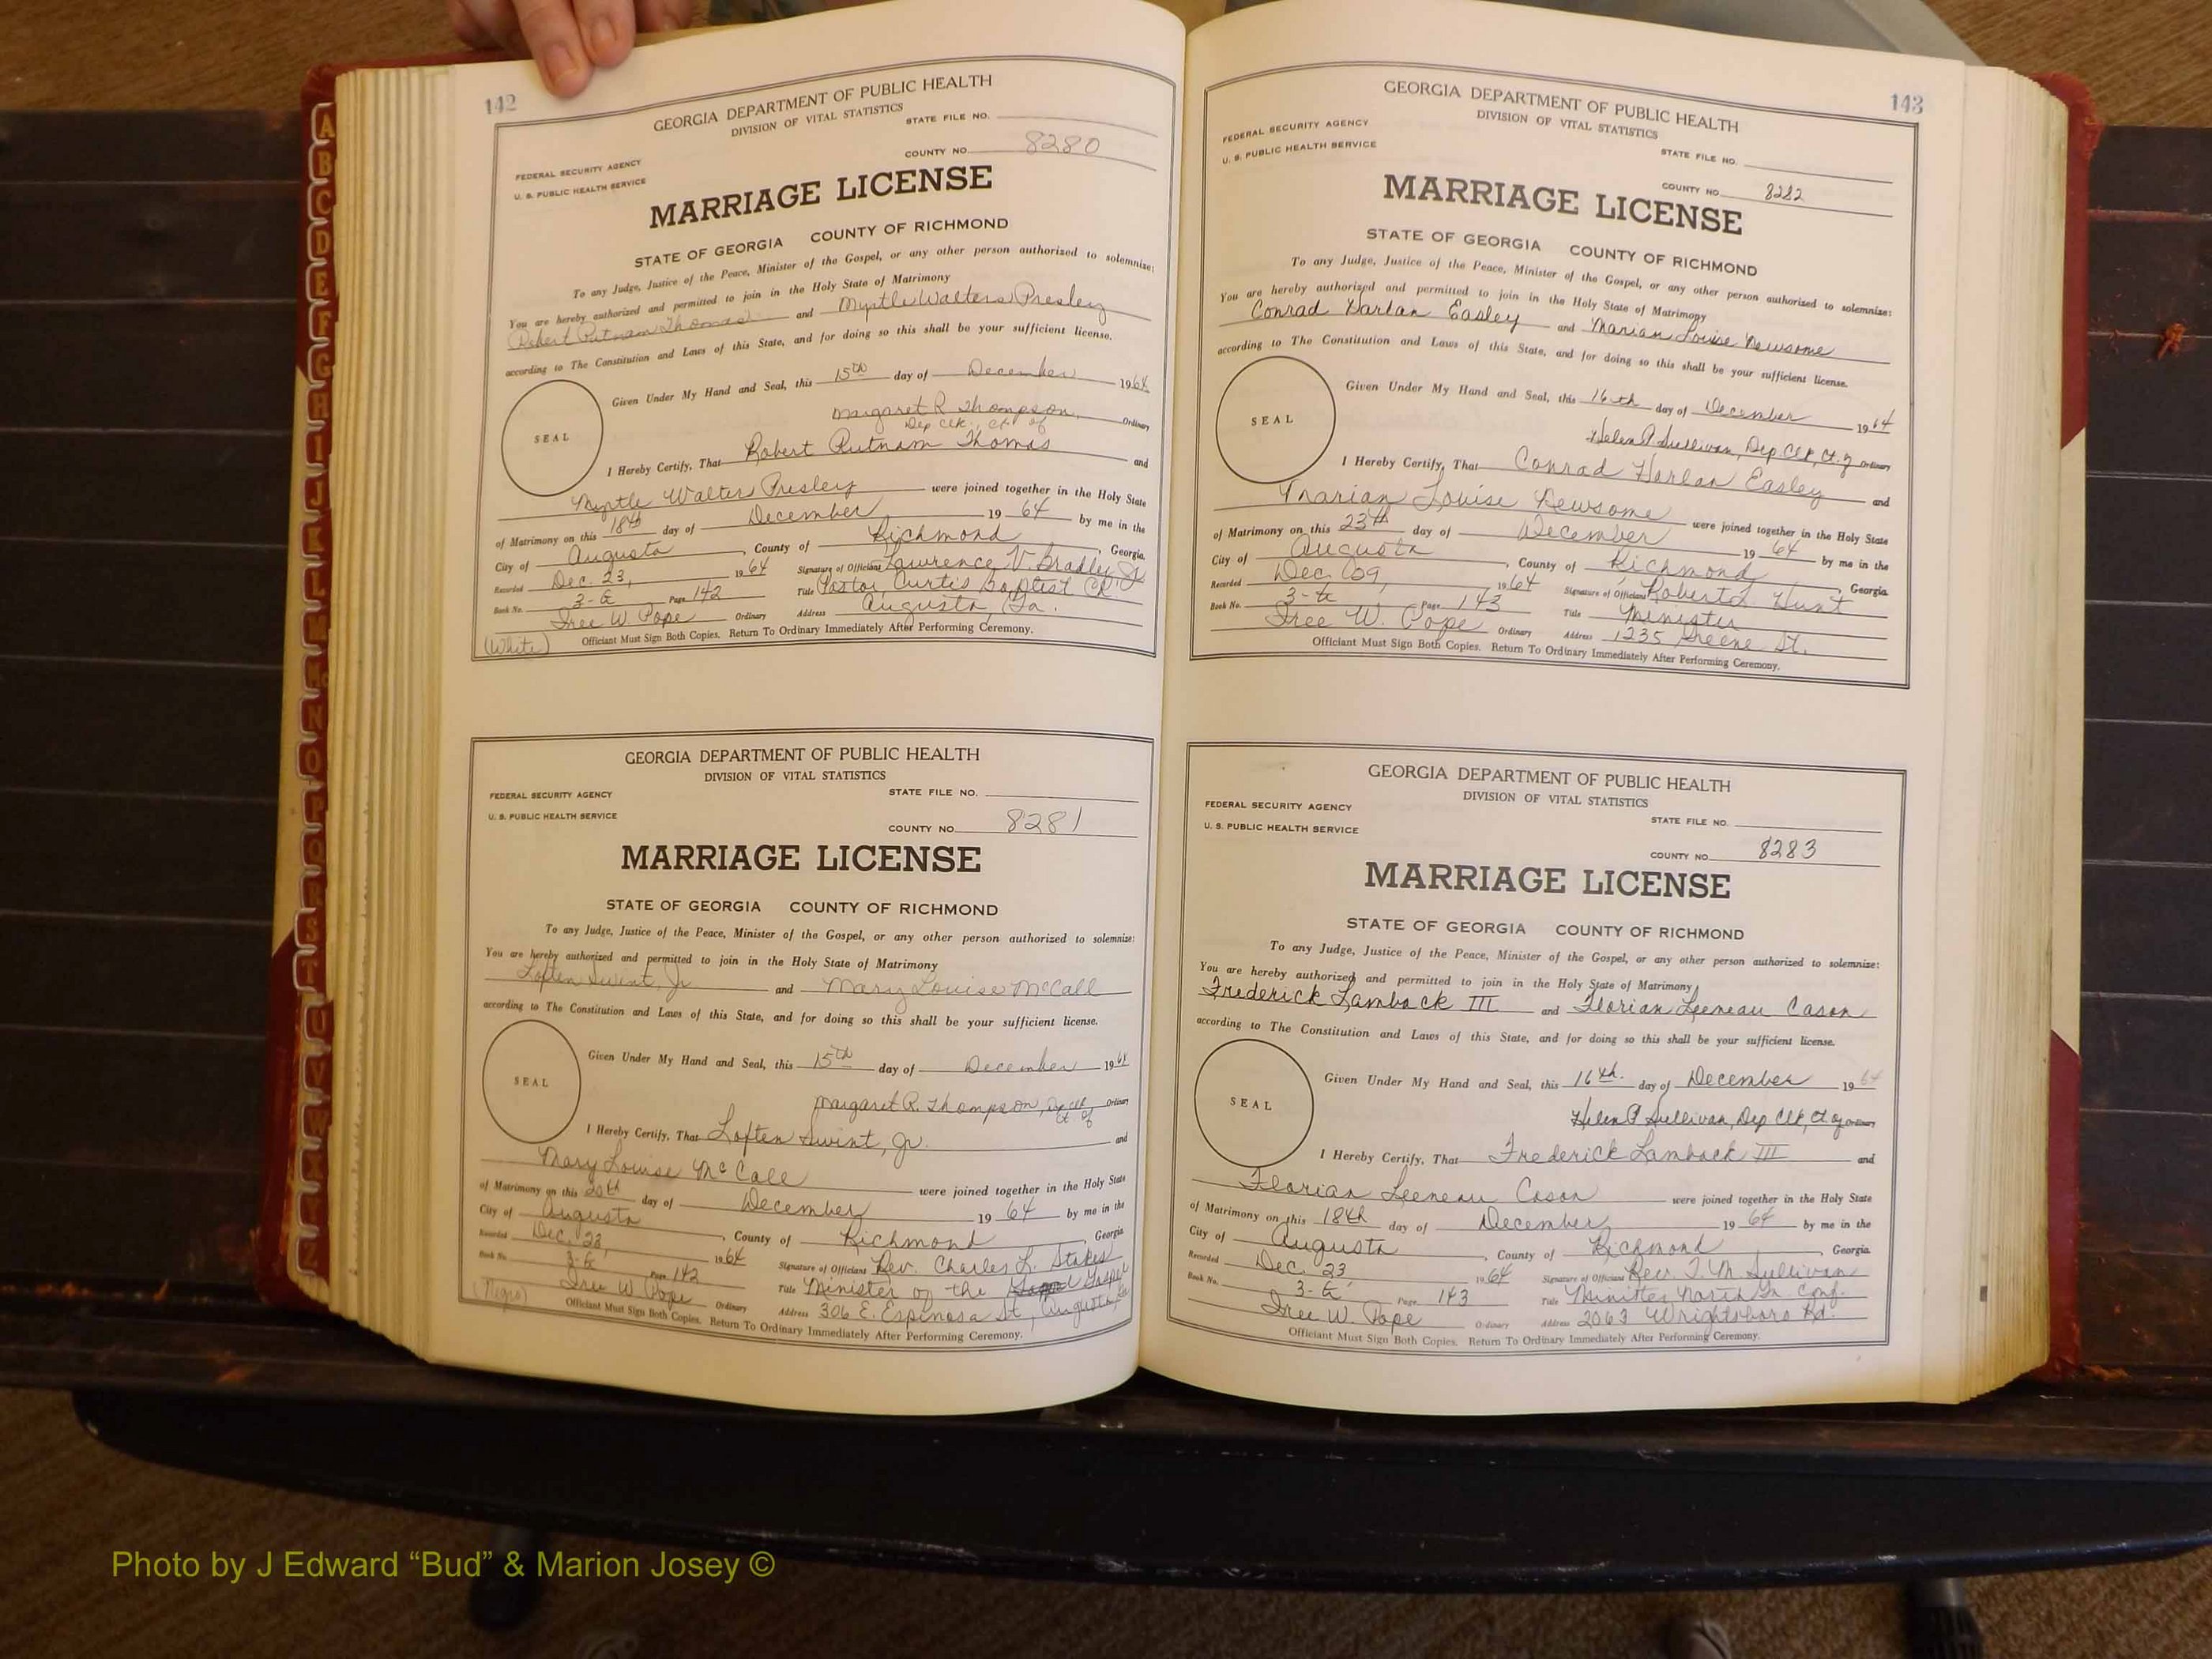 142
GEORGIA DEPARTMENT OF PUBLIC HEALTH
DIVISION OF VITAL STATISTICS
STATE FILE NO.
FEDERAL SECURITY AGENCY
U. S. PUBLIC HEALTH SERVICE
COUNTY NO. 8280
MARRIAGE LICENSE
STATE OF GEORGIA COUNTY OF RICHMOND
To any Judge, Justice of the Peace, Minister of the Gospel, or any other person authorized to solemnize:
You are hereby authorized and permitted to join in the Holy State of Matrimony
Robert Putnam Thomas and Myrtle Walters Presley
according to The Constitution and Laws of this State, and for doing so this shall be your sufficient license.
SEAL
Given Under My Hand and Seal, this 15th day of December 1964
Margaret R. Thompson, Ordinary
Dep Clk., Ct of
I Hereby Certify, That Robert Putnam Thomas and
Myrtle Walters Presley were joined together in the Holy State
of Matrimony on this 18th day of December 19 64 by me in the
City of Augusta, County of Richmond, Georgia.
Recorded Dec. 23, 1964 Signature of Officiant Lawrence V. Bradley Jr
Book No. 3-G Page 142 Title Pastor Curtis Baptist Ch.
Iree W. Pope Ordinary Address Augusta, Ga.
(White) Officiant Must Sign Both Copies. Return To Ordinary Immediately After Performing Ceremony.
GEORGIA DEPARTMENT OF PUBLIC HEALTH
DIVISION OF VITAL STATISTICS
FEDERAL SECURITY AGENCY STATE FILE NO.
U. S. PUBLIC HEALTH SERVICE
COUNTY NO. 8281
MARRIAGE LICENSE
STATE OF GEORGIA COUNTY OF RICHMOND
To any Judge, Justice of the Peace, Minister of the Gospel, or any other person authorized to solemnize:
You are hereby authorized and permitted to join in the Holy State of Matrimony
Loften Swint, Jr and Mary Louise McCall
according to The Constitution and Laws of this State, and for doing so this shall be your sufficient license.
SEAL
Given Under My Hand and Seal, this 15th day of December 1964
Margaret R. Thompson, Dep Clk, Ordinary
Ct. of
I Hereby Certify, That Loften Swint, Jr. and
Mary Louise McCall were joined together in the Holy State
of Matrimony on this 20th day of December 19 64 by me in the
City of Augusta, County of Richmond, Georgia
Recorded Dec. 23, 1964 Signature of Officiant Rev. Charles L. Stakes
Book No. 3-G Page 142 Title Minister of the Gospel
Iree W. Pope Ordinary Address 306 E. Espinosa St, Augusta, Ga
(Negro) Officiant Must Sign Both Copies. Return To Ordinary Immediately After Performing Ceremony.
143
GEORGIA DEPARTMENT OF PUBLIC HEALTH
DIVISION OF VITAL STATISTICS
FEDERAL SECURITY AGENCY
U. S. PUBLIC HEALTH SERVICE
STATE FILE NO.
COUNTY NO. 8282
MARRIAGE LICENSE
STATE OF GEORGIA COUNTY OF RICHMOND
To any Judge, Justice of the Peace, Minister of the Gospel, or any other person authorized to solemnize:
You are hereby authorized and permitted to join in the Holy State of Matrimony
Conrad Harlan Easley and Marian Louise Newsome
according to The Constitution and Laws of this State, and for doing so this shall be your sufficient license.
SEAL
Given Under My Hand and Seal, this 16th day of December 1964
Helen P. Sullivan, Dep. Clk, Ct. of Ordinary
I Hereby Certify, That Conrad Harlan Easley and
Marian Louise Newsome were joined together in the Holy State
of Matrimony on this 23th day of December 19 64 by me in the
City of Augusta, County of Richmond, Georgia.
Recorded Dec. 29, 1964 Signature of Officiant Robert L. Hunt
Book No. 3-G Page 143 Title Minister
Iree W. Pope Ordinary Address 1235 Greene St.
Officiant Must Sign Both Copies. Return To Ordinary Immediately After Performing Ceremony.
GEORGIA DEPARTMENT OF PUBLIC HEALTH
DIVISION OF VITAL STATISTICS
FEDERAL SECURITY AGENCY
U. S. PUBLIC HEALTH SERVICE
STATE FILE NO.
COUNTY NO. 8283
MARRIAGE LICENSE
STATE OF GEORGIA COUNTY OF RICHMOND
To any Judge, Justice of the Peace, Minister of the Gospel, or any other person authorized to solemnize:
You are hereby authorized and permitted to join in the Holy State of Matrimony
Frederick Lamback III and Florian Leeneau Cason
according to The Constitution and Laws of this State, and for doing so this shall be your sufficient license.
SEAL
Given Under My Hand and Seal, this 16th. day of December 1964
Helen P Sullivan, Dep Clk, Ct. of Ordinary
I Hereby Certify, That Frederick Lamback III and
Florian Leeneau Cason were joined together in the Holy State
of Matrimony on this 18th day of December, 19 64 by me in the
City of Augusta, County of Richmond, Georgia.
Recorded Dec. 23, 1964 Signature of Officiant Rev. T. M. Sullivan
Book No. 3-G Page 143 Title Minister North Ga Conf.
Iree W. Pope Ordinary Address 2063 Wrightsboro Rd.
Officiant Must Sign Both Copies. Return To Ordinary Immediately After Performing Ceremony.
A
B
C
D
E
F
G
H
I
J
K
L
M
Mc
N
O
P
Q
R
S
T
U
V
W
X
Y
Z
Photo by J Edward “Bud” & Marion Josey ©